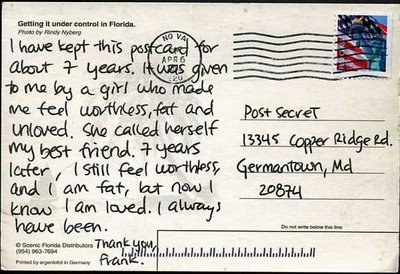 Getting it under control in Florida.
Photo by Rindy Nyberg
I have kept this postcard for
about 7 years. It was given
to me by a girl who made
me feel worthless, fat and
unloved. She called herself
my best friend. 7 years
later, I still feel worthless,
and I am fat, but now I
know I am loved. I always
have been.
Thank you,
Frank.
© Scenic Florida Distributors
(954) 963-7694
Printed by argentofot in Germany
NO VA
APR 6
Post Secret
13345 Copper Ridge Rd.
Germantown, Md
20874
Do not write below this line